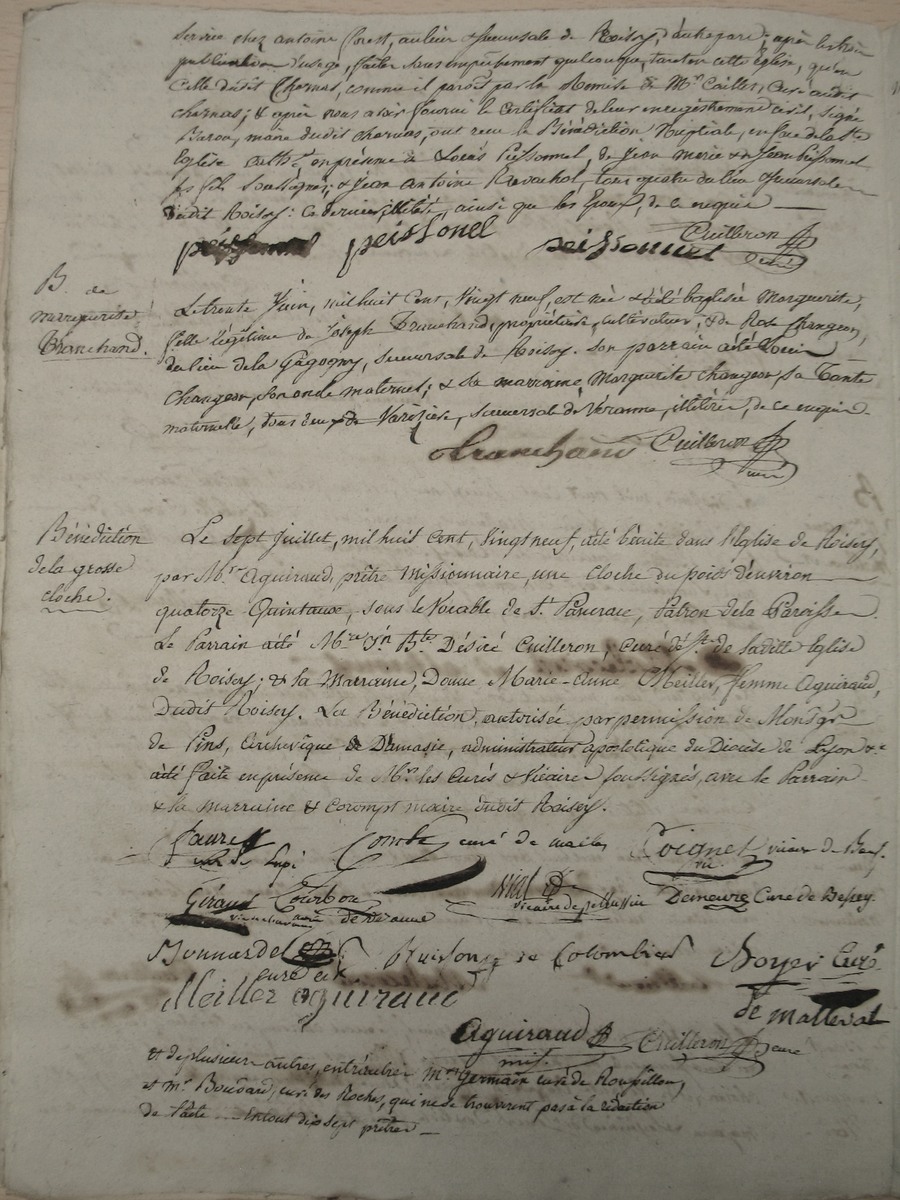 service chez antoine Corest, au lieu & succursale de Roisey, d'autre part; après les trois
publication d'usage, faites sans empêchement quelconque, tant en cette église, qu'en
celle dudit Chernas, comme il paroit par la Remise de Mr. Cailles, Curé audit
chernas; & après nous avoir fourni le certificat de leur enregistrement civil, signé
Baron, maire dudit chernas, ont reçu la Bénédiction Nuptiale, en face de la Ste
Eglise cathe. en présence de Louis Peissonnel, de Jean marie & Jean Peissonnel
ses fils soussignés; & Jean Antoine Ravachol, tous quatre du lieu & succursale
dudit Roisey: ce dernier illitéré, ainsi que les Epoux, de ce enquis
peissonnel peissonel peissonnel Cuilleron
curé
B. de
marguerite
Branchand.
Le trente Juin, mil huit cent, vingt neuf, est née & a été baptisée Marguerite,
fille légitime de Joseph Branchand, propriétaire, cultivateur, & de Rose Changeon,
du lieu de la Gagogny, succursale de Roisey. Son parrain a été Louis
Changeon, son oncle maternel; & sa marraine, Marguerite Changeon, sa Tante
maternelle, tous deux de Varizière, succursale de Véranne, illitérés, de ce enquis.
Branchand Cuilleron
curé
Bénédiction
de la grosse
cloche.
Le sept Juillet, mil huit cent, vingt neuf, a été bénite dans l'Eglise de Roisey,
par Mr. aguiraud, prêtre Missionnaire, une cloche du poids d'environ
quatorze Quintaux, sous le Vocable de St. Pancrace, Patron de la Paroisse.
Le Parrain a été Mre Jn Bte Désiré Cuilleron, curé dest. de ladite Eglise
de Roisey; & la Marraine, Dame Marie-Anne Meiller, femme aguiraud,
Dudit Roisey. La Bénédiction, autorisée par permission de Monsgr.
de Pins, archevêque de D'amasie, administrateur apostolique du Diocèse de Lyon &c
a été faite en présence de Mrs. les Curés & Vicaires soussignés, avec le Parrain
& la marraine & Corompt maire dudit Roisey.
faure Combe curé de maclas Poignet vicaire de Bess.
curé de Lupé vic.
Giraud Courbon vial Demeure Curé de Bessey.
de Véranne vicaire de pellussin
Bonnardel de Colombier Boyer Curé
curé de malleval
Meiller aguiraud
Aguiraud Cuilleron curé
mis.
et de plusieurs autres, entr'autres Mrs Germain curé de Roussillon,
et mr. Boudard, curé des Roches, qui ne se trouvèrent pas à la rédaction
de l'acte. En tout dix sept prêtres